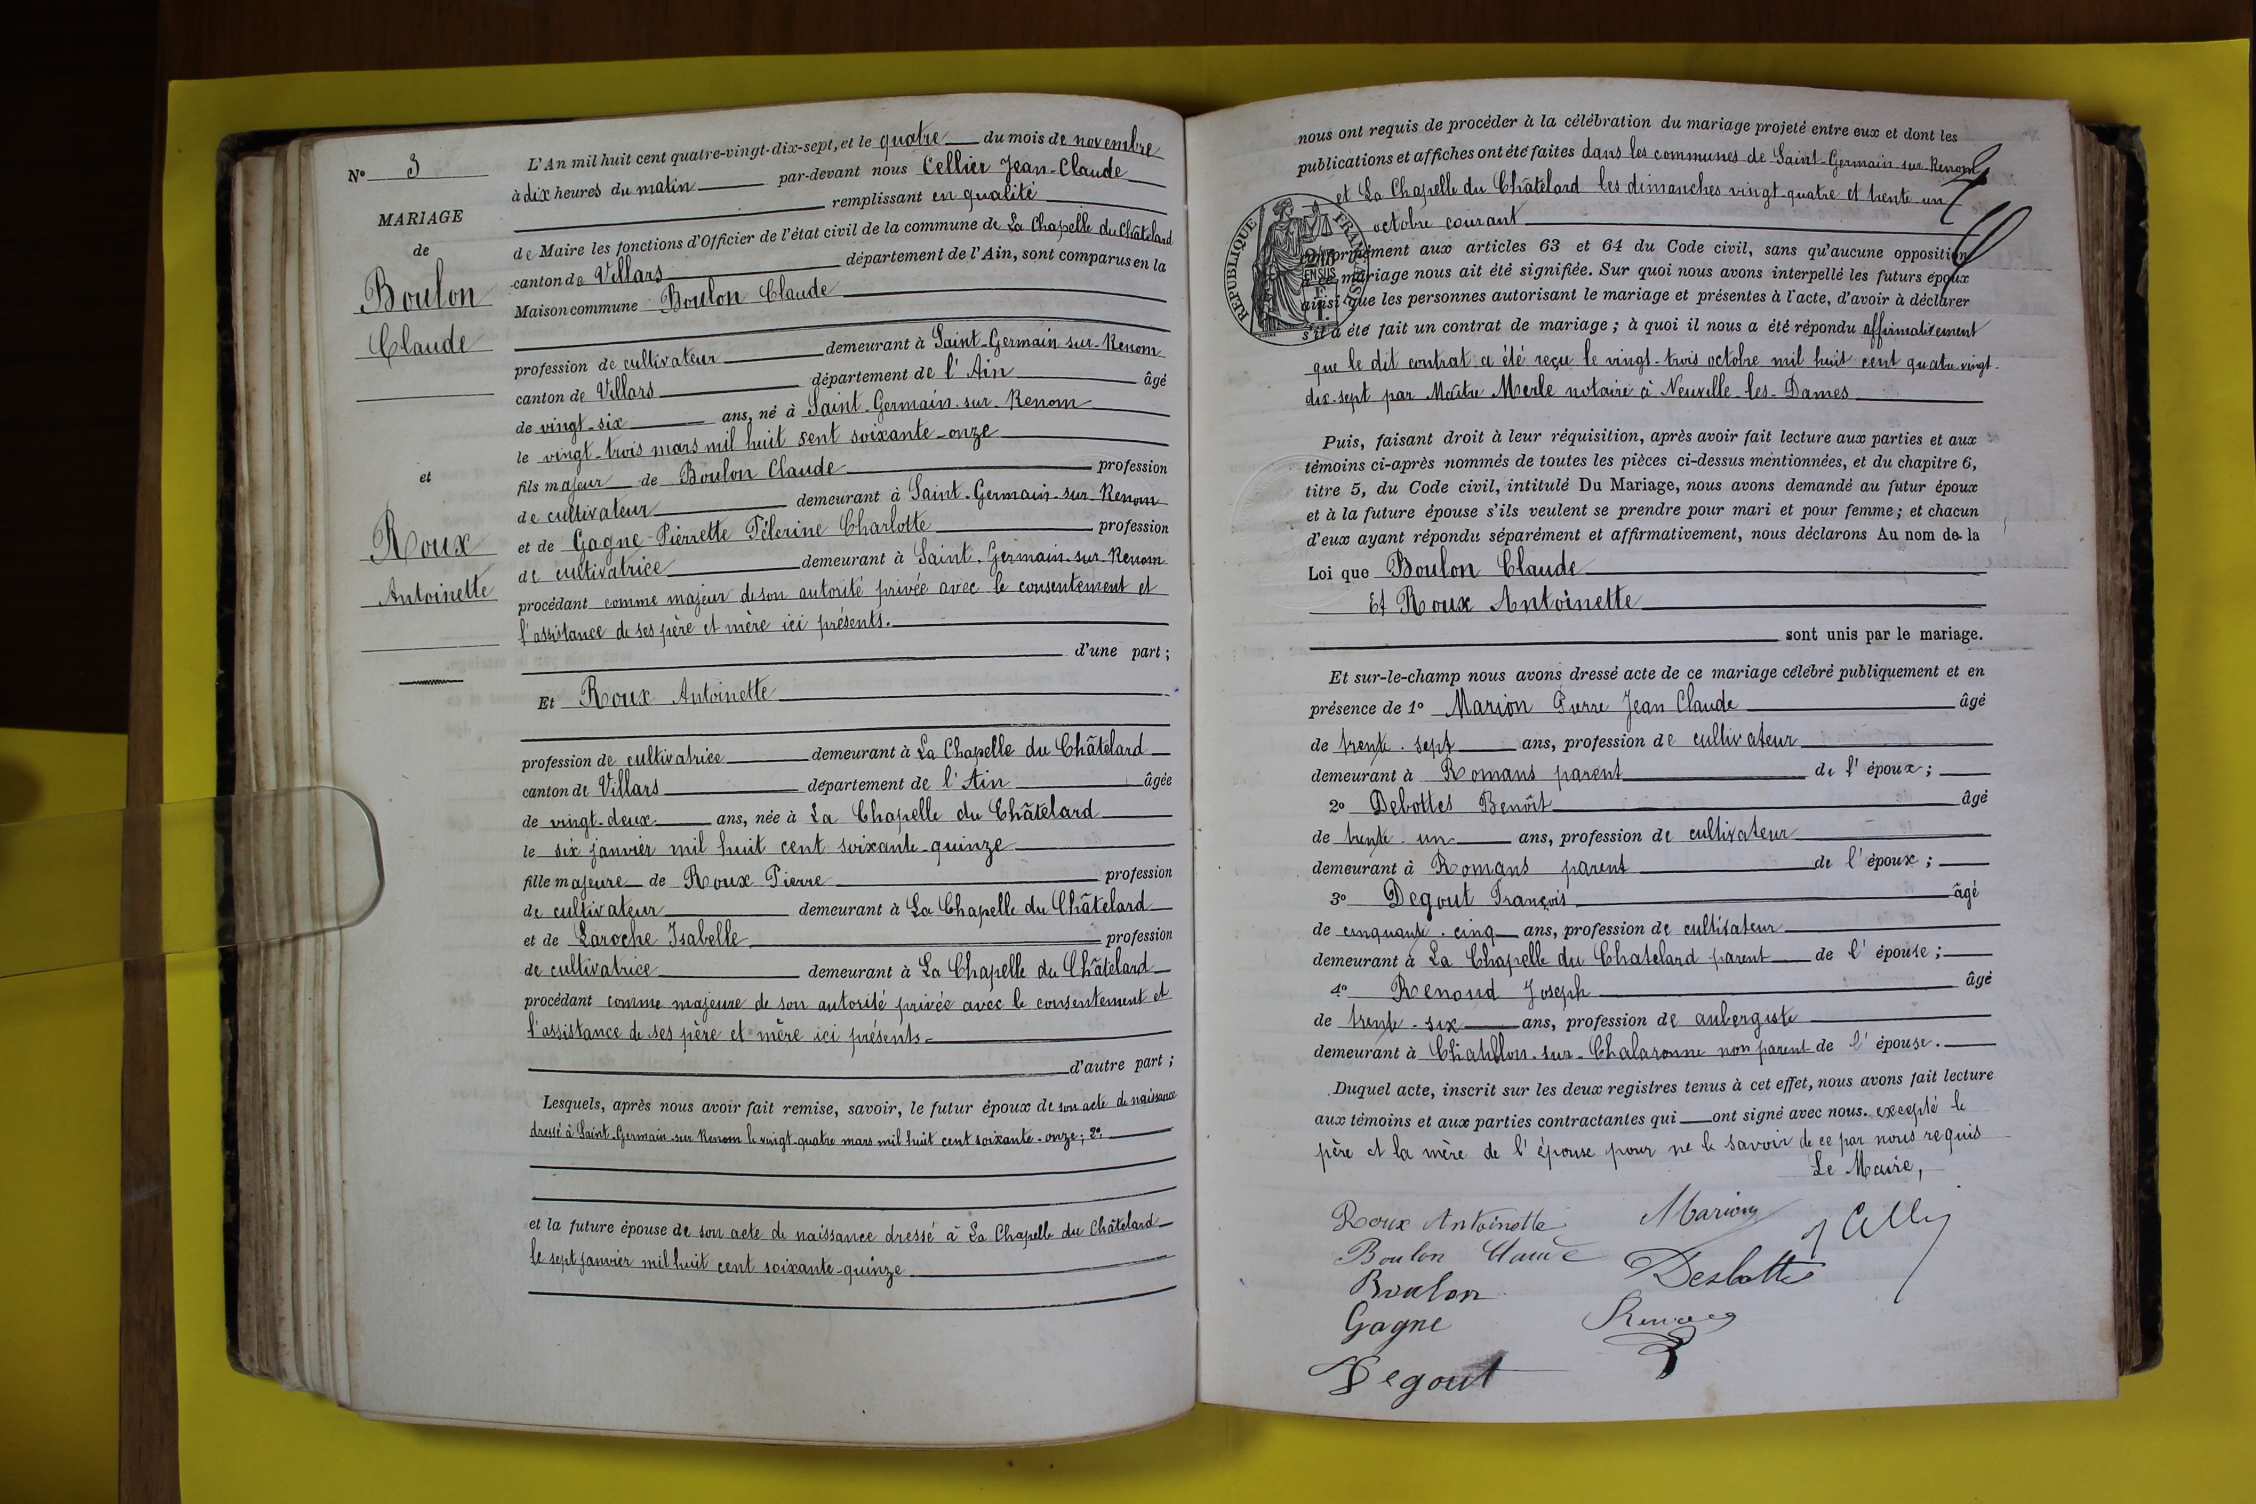 L'An mil huit cent quatre-vingt-dix-sept, et le quatre du mois de novembre
N° 3
à dix heures du matin par-devant nous Cellier Jean-Claude
MARIAGE
remplissant en qualité
de
de Maire les fonctions d'Officier de l'état civil de la commune de La Chapelle du Châtelard
canton de Villars département de l'Ain, sont comparus en la
Boulon
Maison commune Boulon Claude
Claude
profession de cultivateur demeurant à Saint-Germain-sur-Renom
canton de Villars département de l'Ain âgé
de vingt-six ans, né à Saint-Germain-sur-Renom
le vingt-trois mars mil huit sent soixante-onze
et
fils majeur de Boulon Claude profession
de cultivateur demeurant à Saint-Germain-sur-Renom
Roux
et de Gagne Pierrette Pélerine Charlotte profession
de cultivatrice demeurant à Saint-Germain-sur-Renom
Antoinette
procédant comme majeur de son autorité privée avec le consentement et
l'assistance de ses père et mère ici présents.
d'une part ;
Et Roux Antoinette
profession de cultivatrice demeurant à La Chapelle du Châtelard
canton de Villars département de l'Ain âgée
de vingt-deux ans, née à La Chapelle du Châtelard
le six janvier mil huit cent soixante-quinze
fille majeure de Roux Pierre profession
de cultivateur demeurant à La Chapelle du Châtelard
et de Laroche Isabelle profession
de cultivatrice demeurant à La Chapelle du Châtelard
procédant comme majeure de son autorité privée avec le consentement et
l'assistance de ses père et mère ici présents.
d'autre part ;
Lesquels, après nous avoir fait remise, savoir, le futur époux de son acte de naissance
dressé à Saint-Germain-sur-Renom le vingt-quatre mars mil huit cent soixante-onze ; 2°
et la future épouse de son acte de naissance dressé à La Chapelle du Châtelard
le sept janvier mil huit cent soixante-quinze
nous ont requis de procéder à la célébration du mariage projeté entre eux et dont les
publications et affiches ont été faites dans les communes de Saint-Germain-sur-Renom
et La Chapelle du Châtelard les dimanches vingt-quatre et trente-un
octobre courant
RÉPUBLIQUE FRANÇAISE
conformément aux articles 63 et 64 du Code civil, sans qu'aucune opposition
à ce mariage nous ait été signifiée. Sur quoi nous avons interpellé les futurs époux
ainsi que les personnes autorisant le mariage et présentes à l'acte, d'avoir à déclarer
s'il a été fait un contrat de mariage ; à quoi il nous a été répondu affirmativement
que le dit contrat a été reçu le vingt-trois octobre mil huit cent quatre vingt-
dix-sept par Maître Merle notaire à Neuville-les-Dames
Puis, faisant droit à leur réquisition, après avoir fait lecture aux parties et aux
témoins ci-après nommés de toutes les pièces ci-dessus mentionnées, et du chapitre 6,
titre 5, du Code civil, intitulé Du Mariage, nous avons demandé au futur époux
et à la future épouse s'ils veulent se prendre pour mari et pour femme ; et chacun
d'eux ayant répondu séparément et affirmativement, nous déclarons Au nom de la
Loi que Boulon Claude
Et Roux Antoinette
sont unis par le mariage.
Et sur-le-champ nous avons dressé acte de ce mariage célébré publiquement et en
présence de 1° Marion Pierre Jean Claude âgé
de trente-sept ans, profession de cultivateur
demeurant à Romans parent de l'époux ;
2° Debottes Benoît âgé
de trente-un ans, profession de cultivateur
demeurant à Romans parent de l'époux ;
3° Degout François âgé
de cinquante-cinq ans, profession de cultivateur
demeurant à La Chapelle du Chatelard parent de l'épouse ;
4° Renoud Joseph âgé
de trente-six ans, profession de aubergiste
demeurant à Châtillon-sur-Chalaronne non parent de l'épouse.
Duquel acte, inscrit sur les deux registres tenus à cet effet, nous avons fait lecture
aux témoins et aux parties contractantes qui ont signé avec nous. excepté le
père et la mère de l'épouse pour ne le savoir de ce par nous requis
Le Maire,
Roux Antoinette Marion
Boulon Claude Desbottes
Boulon
Gagne
Degout